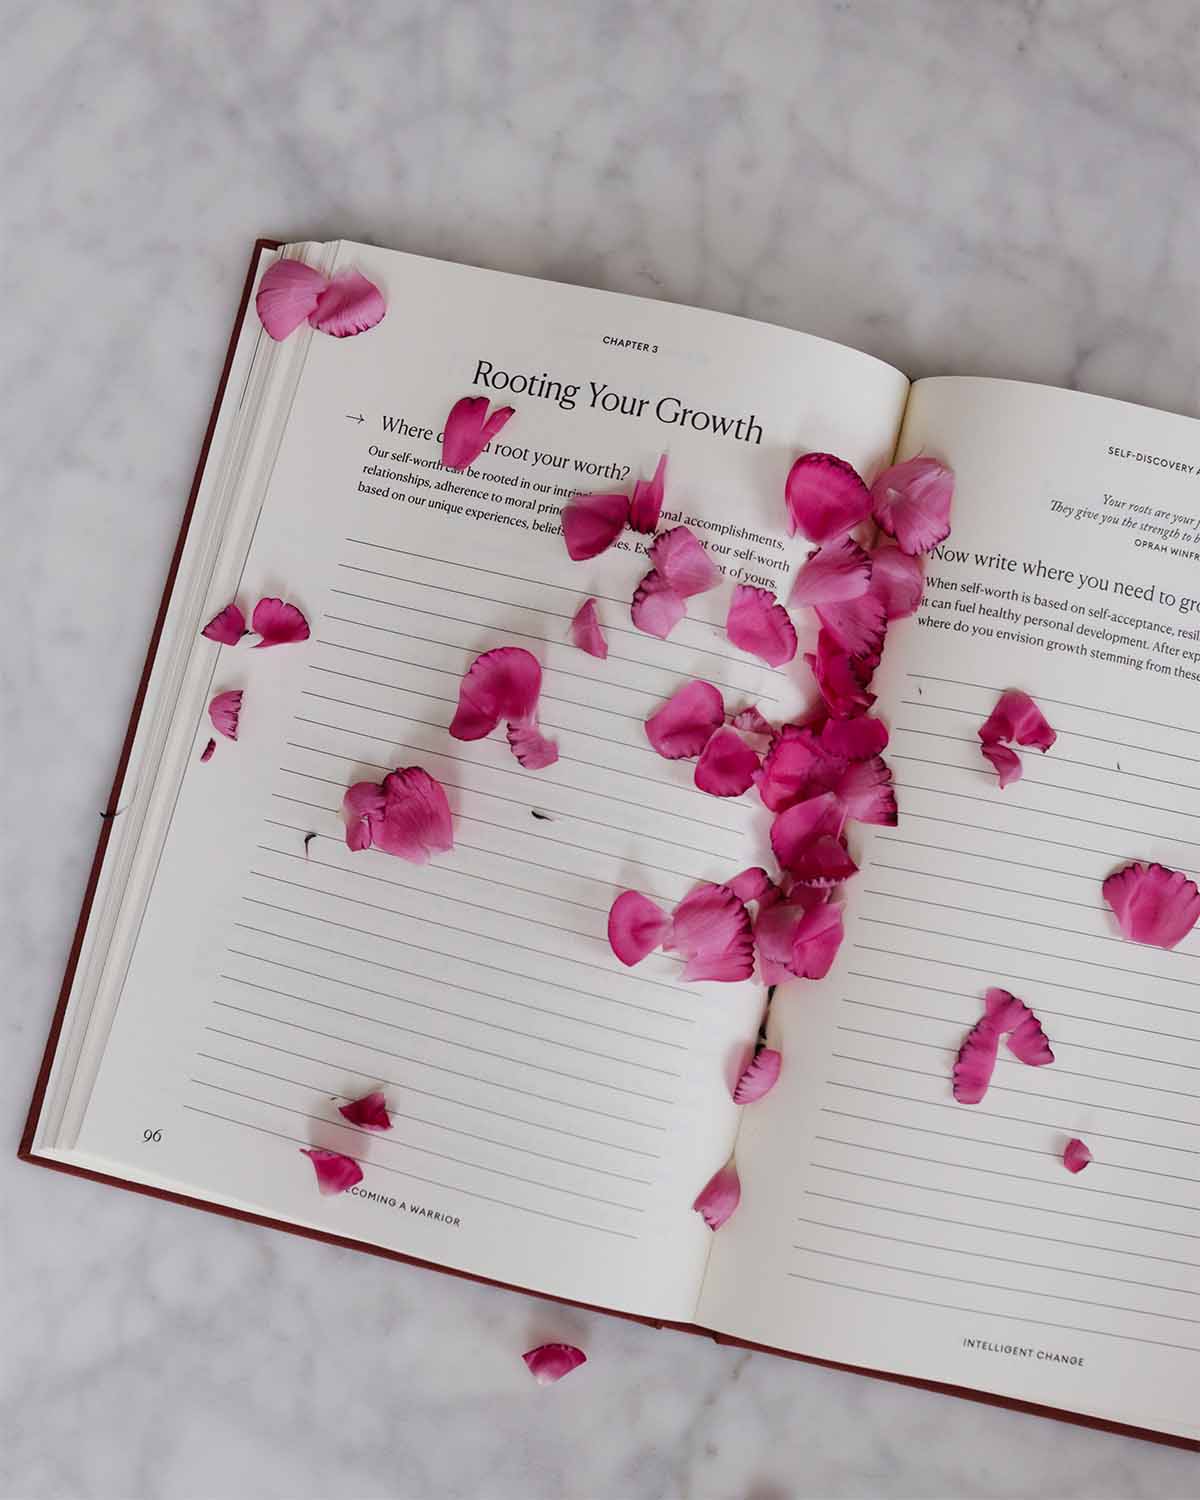 CHAPTER 3
Rooting Your Growth
→ Where root your worth?
Our self-worth can be rooted in our accomplishments,
relationships, adherence to moral our self-worth
based on our unique experiences, of yours.
96
BECOMING A WARRIOR
SELF-DISCOVERY
Your roots are your
They give you the strength to
OPRAH
Now write where you need to
When self-worth is based on self-acceptance,
it can fuel healthy personal development. After
where do you envision growth stemming from these
INTELLIGENT CHANGE